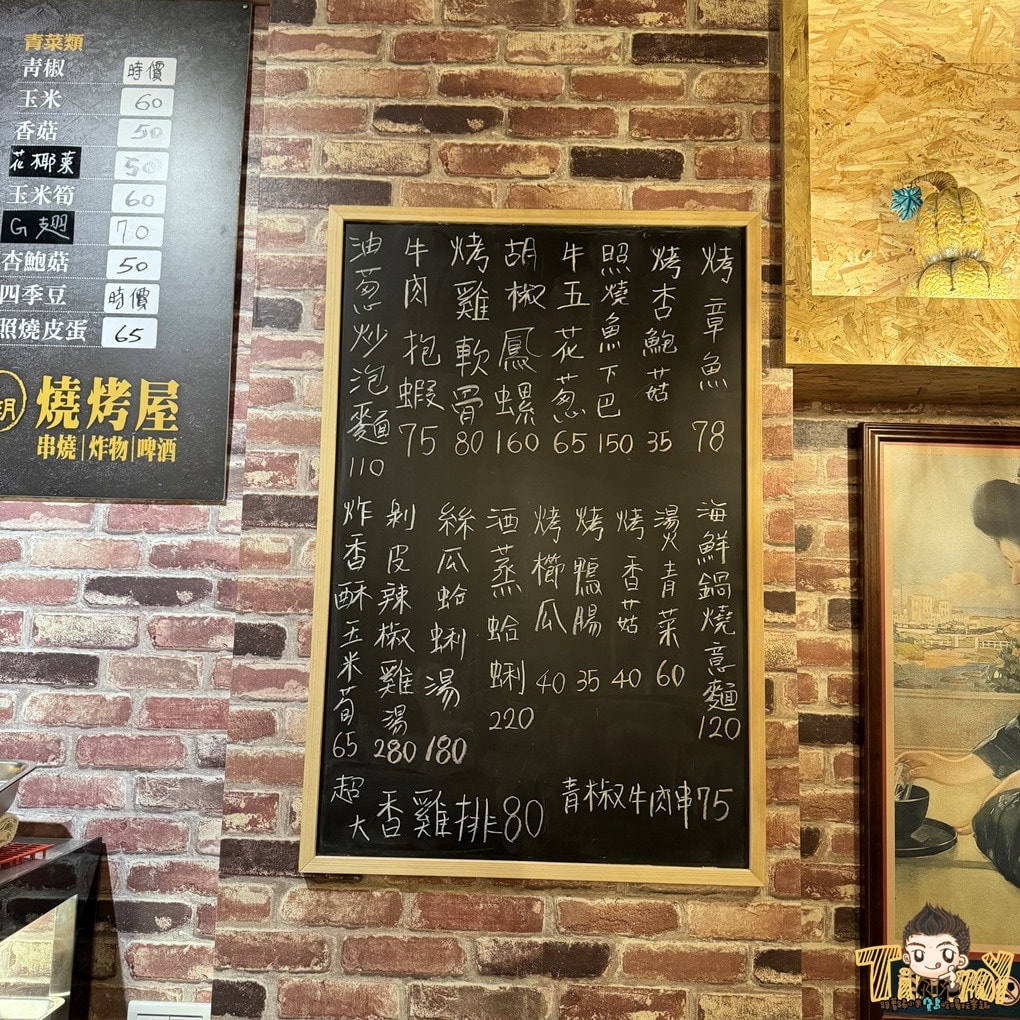 青菜類
青椒 時價
玉米 60
香菇 50
花椰菜 50
玉米筍 60
G翅 70
杏鮑菇 50
四季豆 時價
照燒皮蛋 65
燒烤屋
串燒|炸物|啤酒
烤章魚 78
烤杏鮑菇 35
照燒魚下巴 150
牛五花蔥 65
胡椒鳳螺 160
烤雞軟骨 80
牛肉抱蝦 75
油蔥炒泡麵 110
海鮮鍋燒意麵 120
燙青菜 60
烤香菇 40
烤鴨腸 35
烤櫛瓜 40
酒蒸蛤蜊 220
絲瓜蛤蜊湯 180
剝皮辣椒雞湯 280
炸香酥玉米筍 65
超大香雞排80
青椒牛肉串75